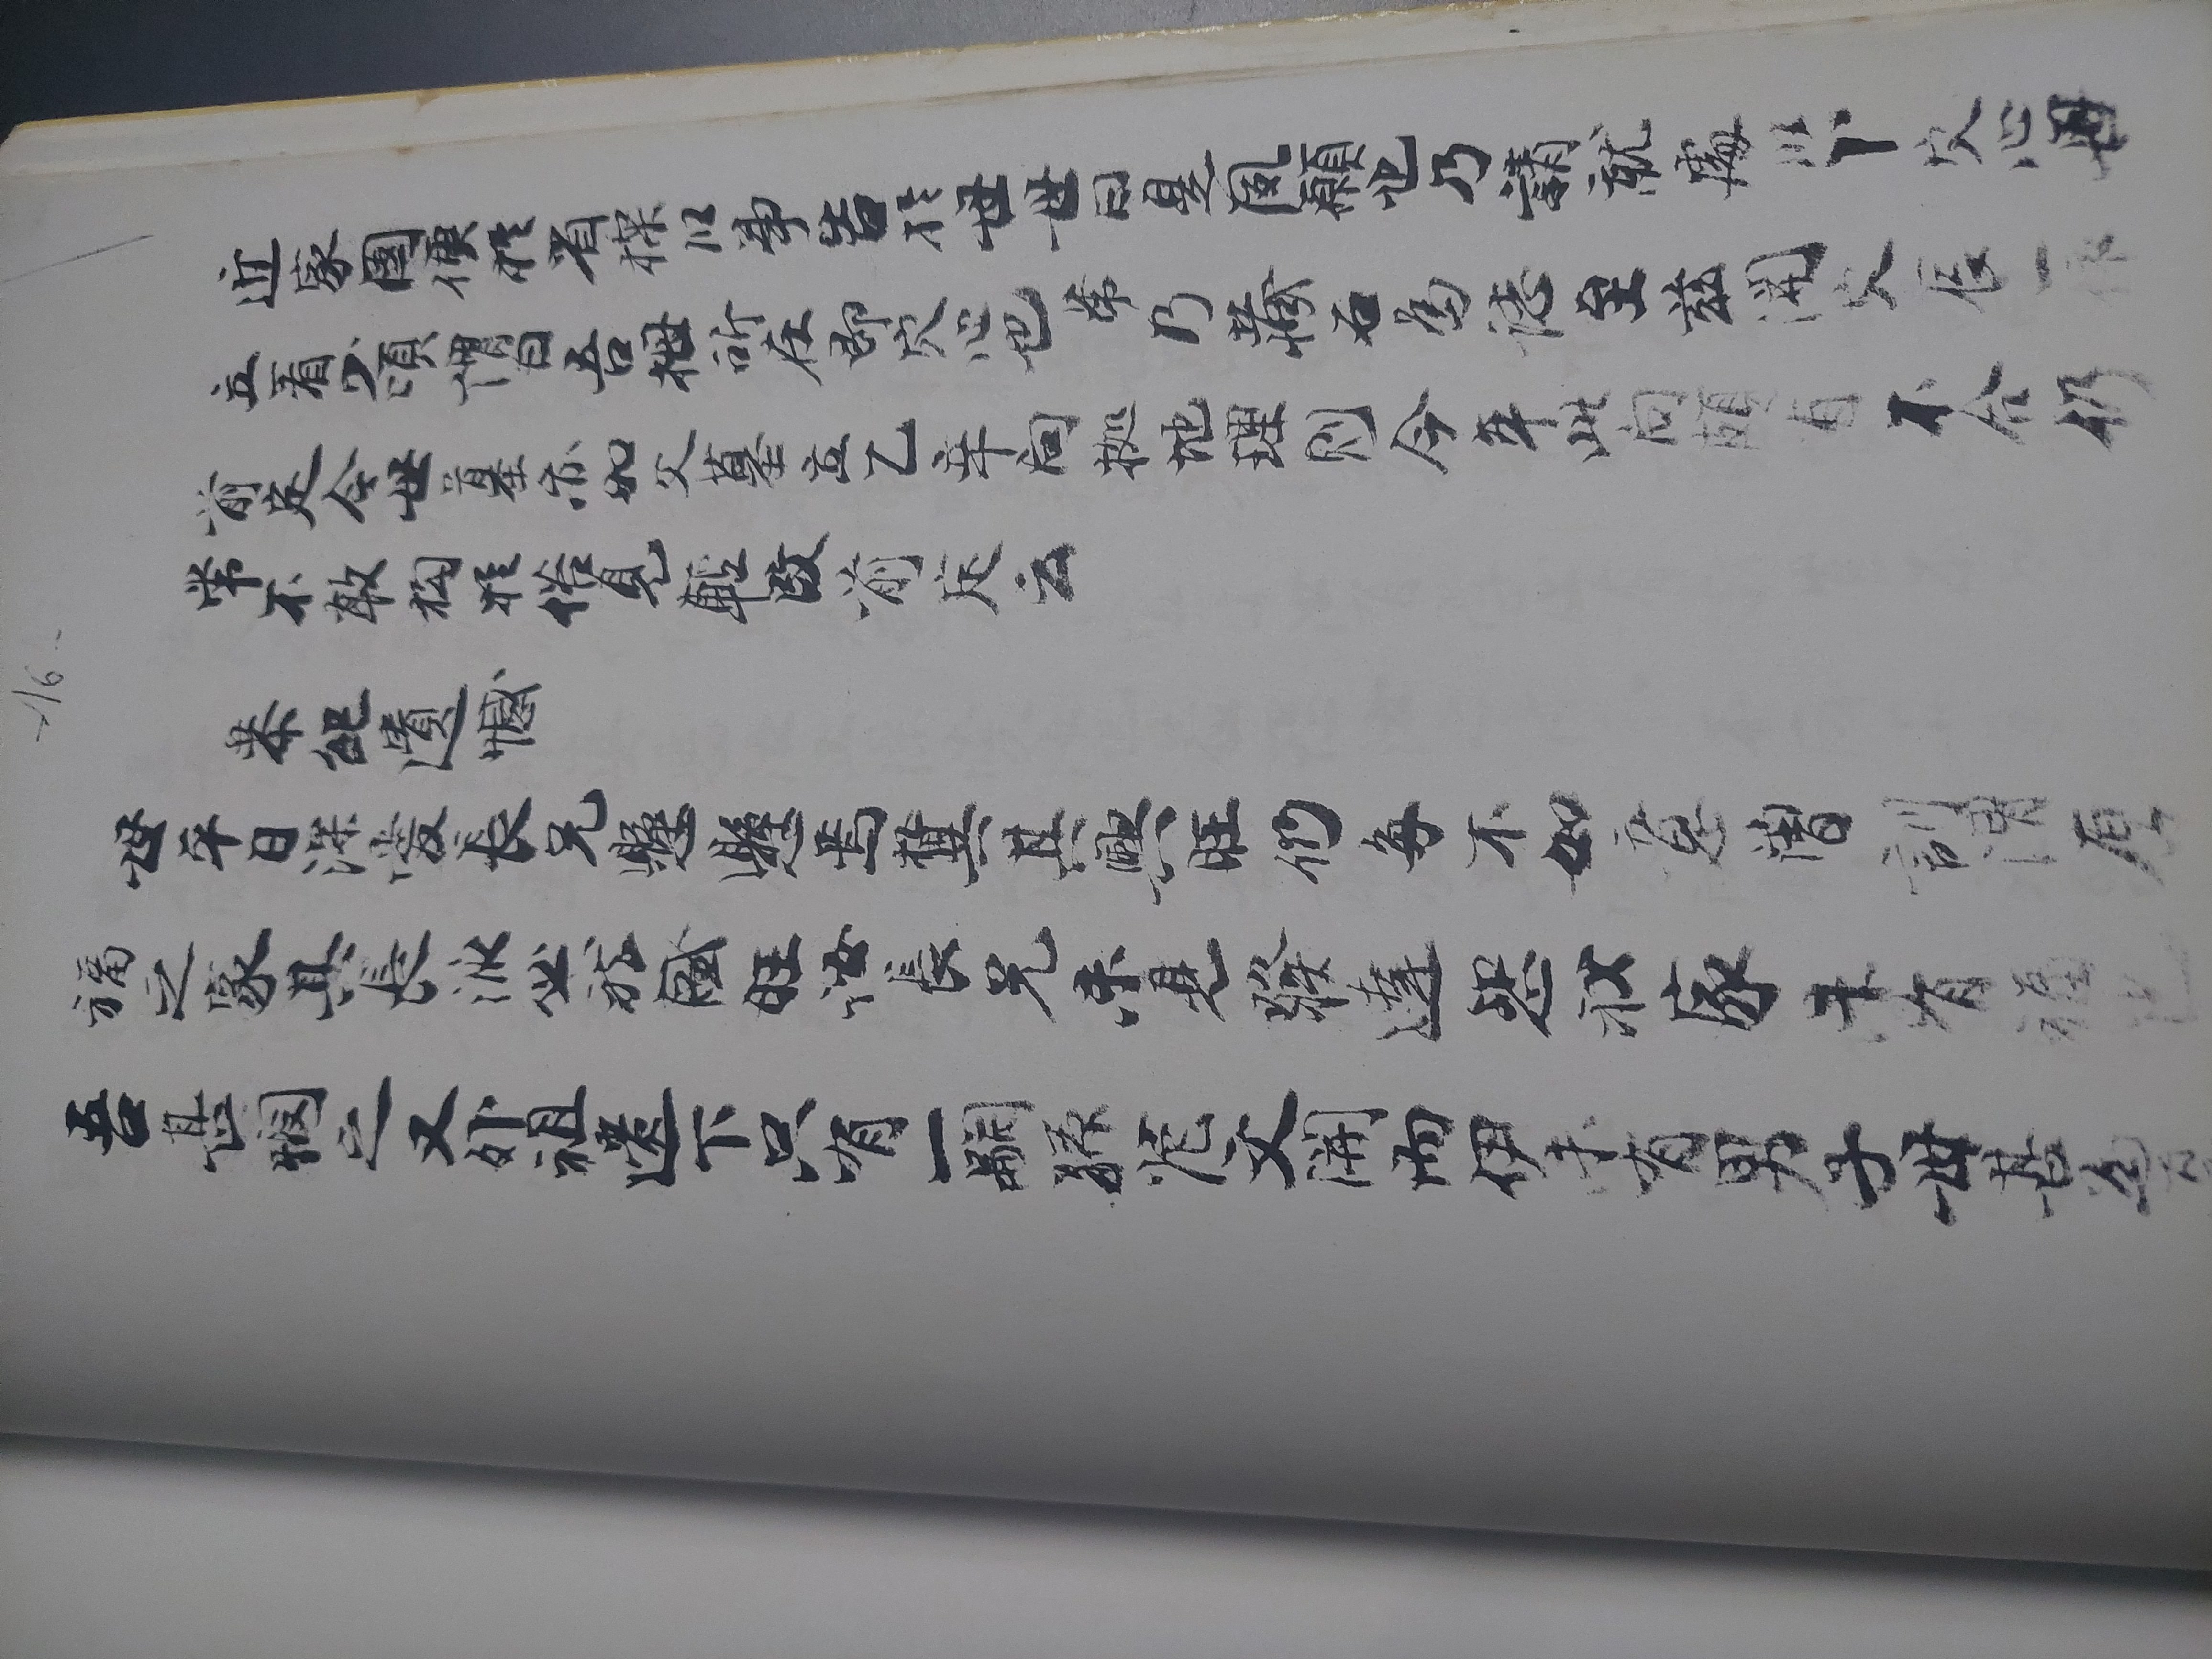 -16-
近家園便於省探以事告於母母曰是夙願也乃請就處以卜穴心母
立看少頃謂曰吾拇所在即穴心也常乃藏石為誌至茲開穴辰一依
前定今母墓亦如父墓立乙辛向拠地理則今年此向頗有不合仍
常不敢构於俗見輕改前定云
恭紀遺憾
母平日深愛長兄懸懸焉冀其興旺仍每不如意曽訓謂原
福之家其長派必然盛旺汝長兄未見發達恐我家未有福也
吾甚憫之又外祖遺下只有一嗣孫范文開而伊未有男子母甚為